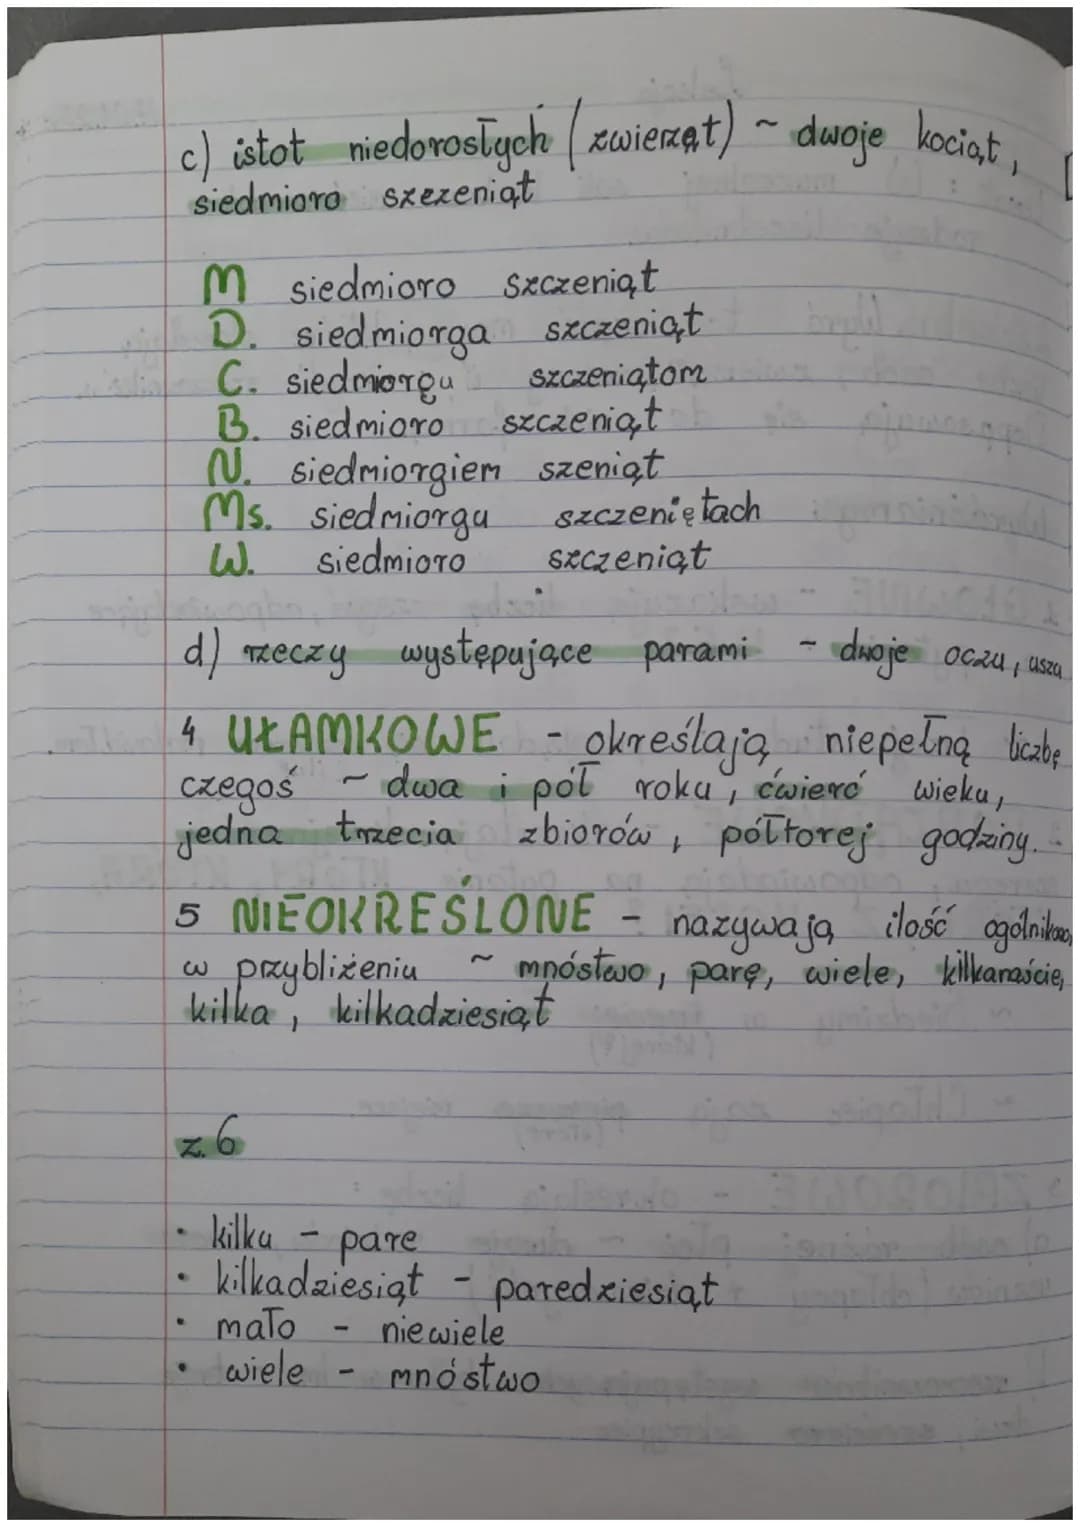 c) istot niedorosłych (zwierząt) ~ dwoje kociąt,
siedmioro szczeniąt
M siedmioro szczeniąt
D. siedmiorga szczeniąt
C. siedmiorgu szczeniątom
B. siedmioro szczeniąt
N. siedmiorgiem szeniąt
Ms. siedmiorgu szczeniętach
W. siedmioro szczeniąt
d) rzeczy występujące parami - dwoje oczu, uszu
4 UŁAMKOWE - określają niepełną liczbę
czegoś ~ dwa i pół roku, ćwierć wieku,
jedna trzecia zbiorów, półtorej godziny.
5 NIEOKREŚLONE - nazywają ilość ogólnikowo,
w przybliżeniu ~ mnóstwo, parę, wiele, kilkanaście,
kilka, kilkadziesiąt
z. 6
• kilku - pare
• kilkadziesiąt - paredziesiąt
• mało - niewiele
• wiele - mnóstwo